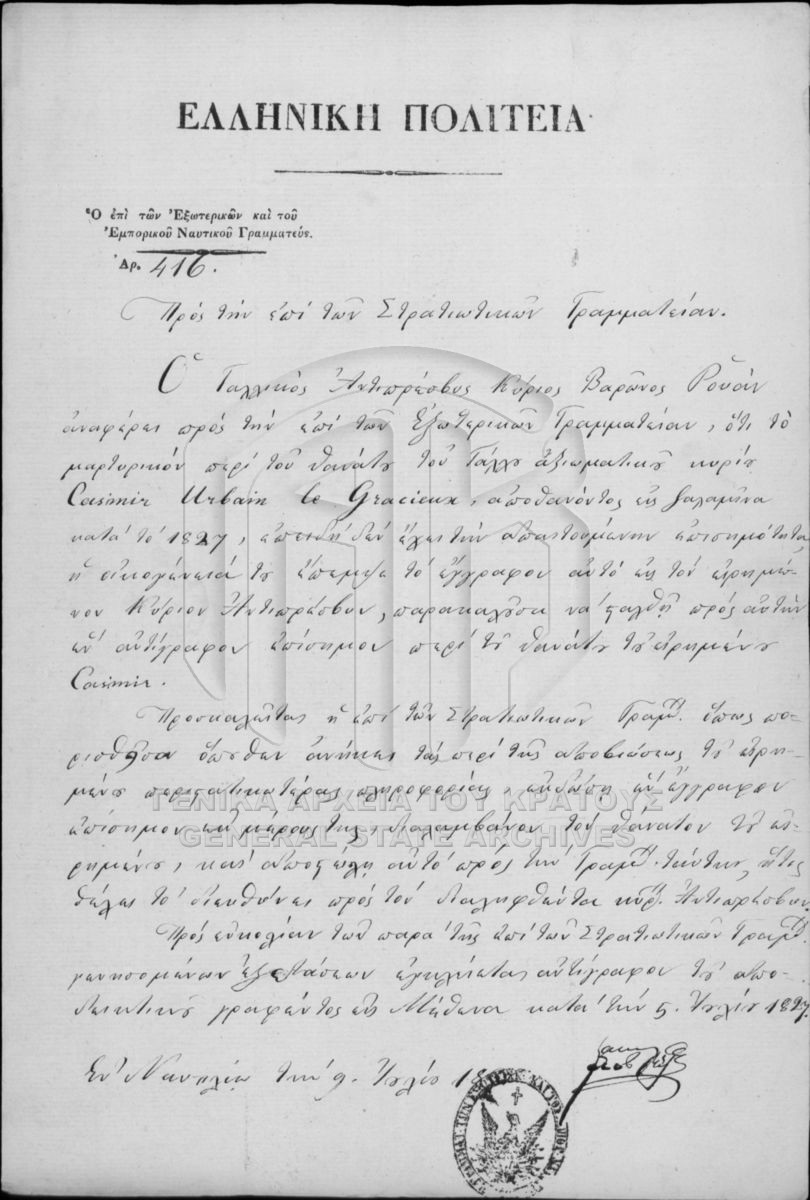 ΕΛΛΗΝΙΚΗ ΠΟΛΙΤΕΙΑ
Ὁ ἐπὶ τῶν Ἐξωτερικῶν καὶ τοῦ
Ἐμπορικοῦ Ναυτικοῦ Γραμματεύς.
Ἀρ. 416.
Πρὸς τὴν ἐπὶ τῶν Στρατιωτικῶν Γραμματείαν.
Ὁ Γαλλικὸς Ἀντιπρέσβυς Κύριος Βαρῶνος Ῥουὰν
ἀναφέρει πρὸς τὴν ἐπὶ τῶν Ἐξωτερικῶν Γραμματείαν, ὅτι τὸ
μαρτυρικὸν περὶ τοῦ θανάτου τοῦ Γάλλου ἀξιωματικοῦ κυρίου
Casimir Urbain le Gracieux, ἀποθανόντος εἰς Σαλαμῖνα
κατὰ τὸ 1827, ἐπειδὴ δὲν ἔχει τὴν ἀπαιτουμένην ἐπισημότητα,
ἡ οἰκογένειά του ἔπεμψε τὸ ἔγγραφον αὐτὸ εἰς τὸν εἰρημέ-
νον Κύριον Ἀντιπρέσβυν, παρακαλοῦσα νὰ σταλθῇ πρὸς αὐτὴν
ἓν ἀντίγραφον ἐπίσημον περὶ τοῦ θανάτου τοῦ εἰρημένου
Casimir.
Προσκαλεῖται ἡ ἐπὶ τῶν Στρατιωτικῶν Γραμμ. ὅπως πο-
ρισθεῖσα ὅποθεν ἀνήκει τὰς περὶ τῆς ἀποβιώσεως τοῦ εἰρη-
μένου περιστατικωτέρας πληροφορίας, ἐκδώσῃ ἓν ἔγγραφον
ἐπίσημον ἐκ μέρους της, διαλαμβάνον τὸν θάνατον τοῦ εἰ-
ρημένου, καὶ ἀποστείλῃ αὐτὸ πρὸς τὴν Γραμμ. ταύτην, ἥτις
θέλει τὸ διευθύνει πρὸς τὸν διαληφθέντα κύρ. Ἀντιπρέσβυν.
Πρὸς εὐκολίαν τῶν παρὰ τῆς ἐπὶ τῶν Στρατιωτικῶν Γραμμ.
γενησομένων ἐξετάσεων ἐγκλείεται ἀντίγραφον τοῦ ἀπο-
δεικτικοῦ γραφέντος εἰς Μέθενα κατὰ τὴν 5. Ἰουλίου 1827.
Ἐν Ναυπλίῳ τὴν 9. Ἰουλίου
ΓΕΝΙΚΑ ΑΡΧΕΙΑ ΤΟΥ ΚΡΑΤΟΥΣ
GENERAL STATE ARCHIVES